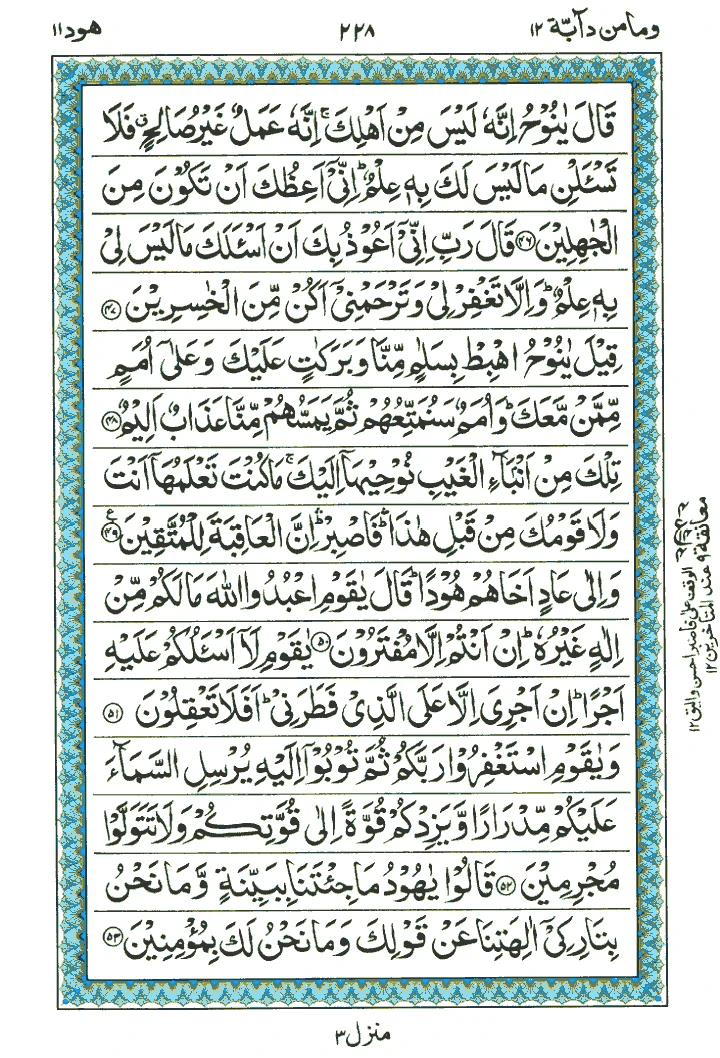 وما من دآبة ١٢
٢٢٨
هود ١١
قَالَ يٰنُوْحُ اِنَّهٗ لَيْسَ مِنْ اَهْلِكَ ۚ اِنَّهٗ عَمَلٌ غَيْرُ صَالِحٍ ۖ فَلَا
تَسْـَٔلْنِ مَا لَيْسَ لَكَ بِهٖ عِلْمٌ ؕ اِنِّيْۤ اَعِظُكَ اَنْ تَكُوْنَ مِنَ
الْجٰهِلِيْنَ ﴿۴۶﴾ قَالَ رَبِّ اِنِّيْۤ اَعُوْذُ بِكَ اَنْ اَسْـَٔلَكَ مَا لَيْسَ لِيْ
بِهٖ عِلْمٌ ؕ وَاِلَّا تَغْفِرْ لِيْ وَتَرْحَمْنِيْۤ اَكُنْ مِّنَ الْخٰسِرِيْنَ ﴿۴۷﴾
قِيْلَ يٰنُوْحُ اهْبِطْ بِسَلٰمٍ مِّنَّا وَبَرَكٰتٍ عَلَيْكَ وَعَلٰۤى اُمَمٍ
مِّمَّنْ مَّعَكَ ؕ وَاُمَمٌ سَنُمَتِّعُهُمْ ثُمَّ يَمَسُّهُمْ مِّنَّا عَذَابٌ اَلِيْمٌ ﴿۴۸﴾
تِلْكَ مِنْ اَنْۢبَآءِ الْغَيْبِ نُوْحِيْهَاۤ اِلَيْكَ ۚ مَا كُنْتَ تَعْلَمُهَاۤ اَنْتَ
وَلَا قَوْمُكَ مِنْ قَبْلِ هٰذَا ۛؕ فَاصْبِرْ ۛؕ اِنَّ الْعَاقِبَةَ لِلْمُتَّقِيْنَ ﴿۴۹﴾ ع
وَاِلٰى عَادٍ اَخَاهُمْ هُوْدًا ؕ قَالَ يٰقَوْمِ اعْبُدُوا اللّٰهَ مَا لَكُمْ مِّنْ
اِلٰهٍ غَيْرُهٗ ؕ اِنْ اَنْتُمْ اِلَّا مُفْتَرُوْنَ ﴿۵۰﴾ يٰقَوْمِ لَاۤ اَسْـَٔلُكُمْ عَلَيْهِ
اَجْرًا ؕ اِنْ اَجْرِيَ اِلَّا عَلَى الَّذِيْ فَطَرَنِيْ ؕ اَفَلَا تَعْقِلُوْنَ ﴿۵۱﴾
وَيٰقَوْمِ اسْتَغْفِرُوْا رَبَّكُمْ ثُمَّ تُوْبُوْۤا اِلَيْهِ يُرْسِلِ السَّمَآءَ
عَلَيْكُمْ مِّدْرَارًا وَّيَزِدْكُمْ قُوَّةً اِلٰى قُوَّتِكُمْ وَلَا تَتَوَلَّوْا
مُجْرِمِيْنَ ﴿۵۲﴾ قَالُوْا يٰهُوْدُ مَا جِئْتَنَا بِبَيِّنَةٍ وَّمَا نَحْنُ
بِتَارِكِيْۤ اٰلِهَتِنَا عَنْ قَوْلِكَ وَمَا نَحْنُ لَكَ بِمُؤْمِنِيْنَ ﴿۵۳﴾
معانقة ٩ عند المتأخرين ١٢
الوقف على فاصبر احسن واليق ١٢
منزل ٣